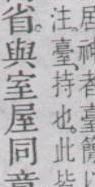 用神者臺簡
注臺持也此皆
省與室屋同意